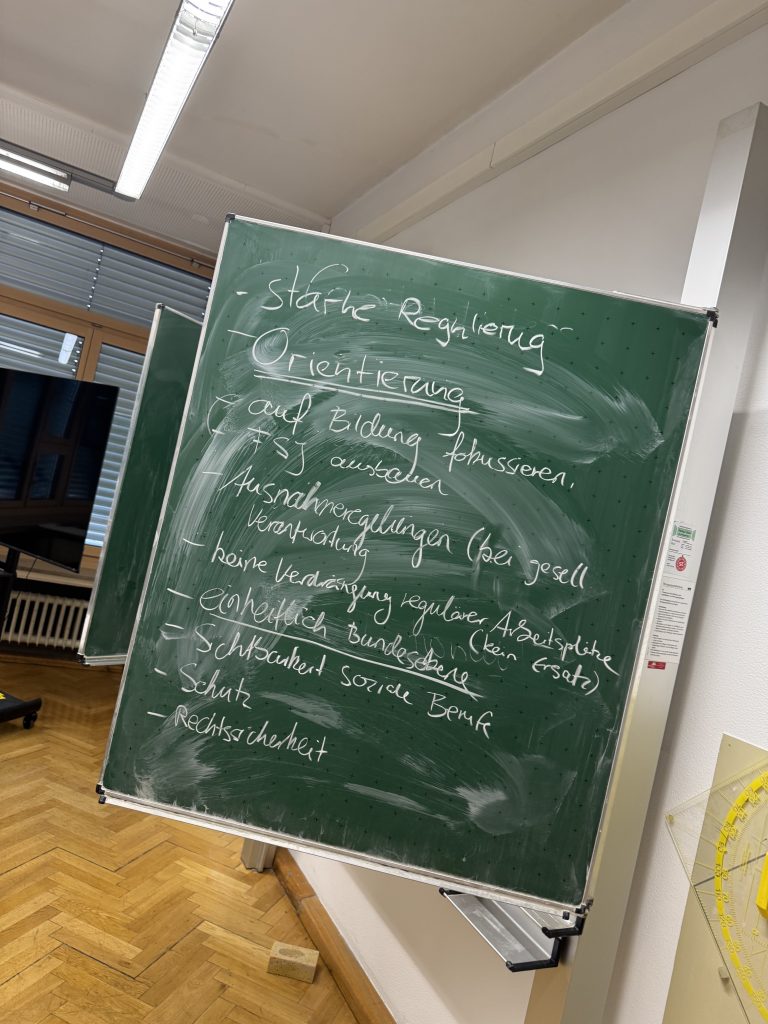 - starke Regulierug
- Orientierung
- auf Bildung fokussieren.
(- FSJ ausbauen
- Ausnahmeregelungen (bei gesell
Verantwortung
- keine Verdrängung regulärer Arbeitsplätze
(kein Ersatz)
- einheitlich Bundesebene
- Sichtbarkeit soziale Berufe
- Schutz
- Rechtssicherheit